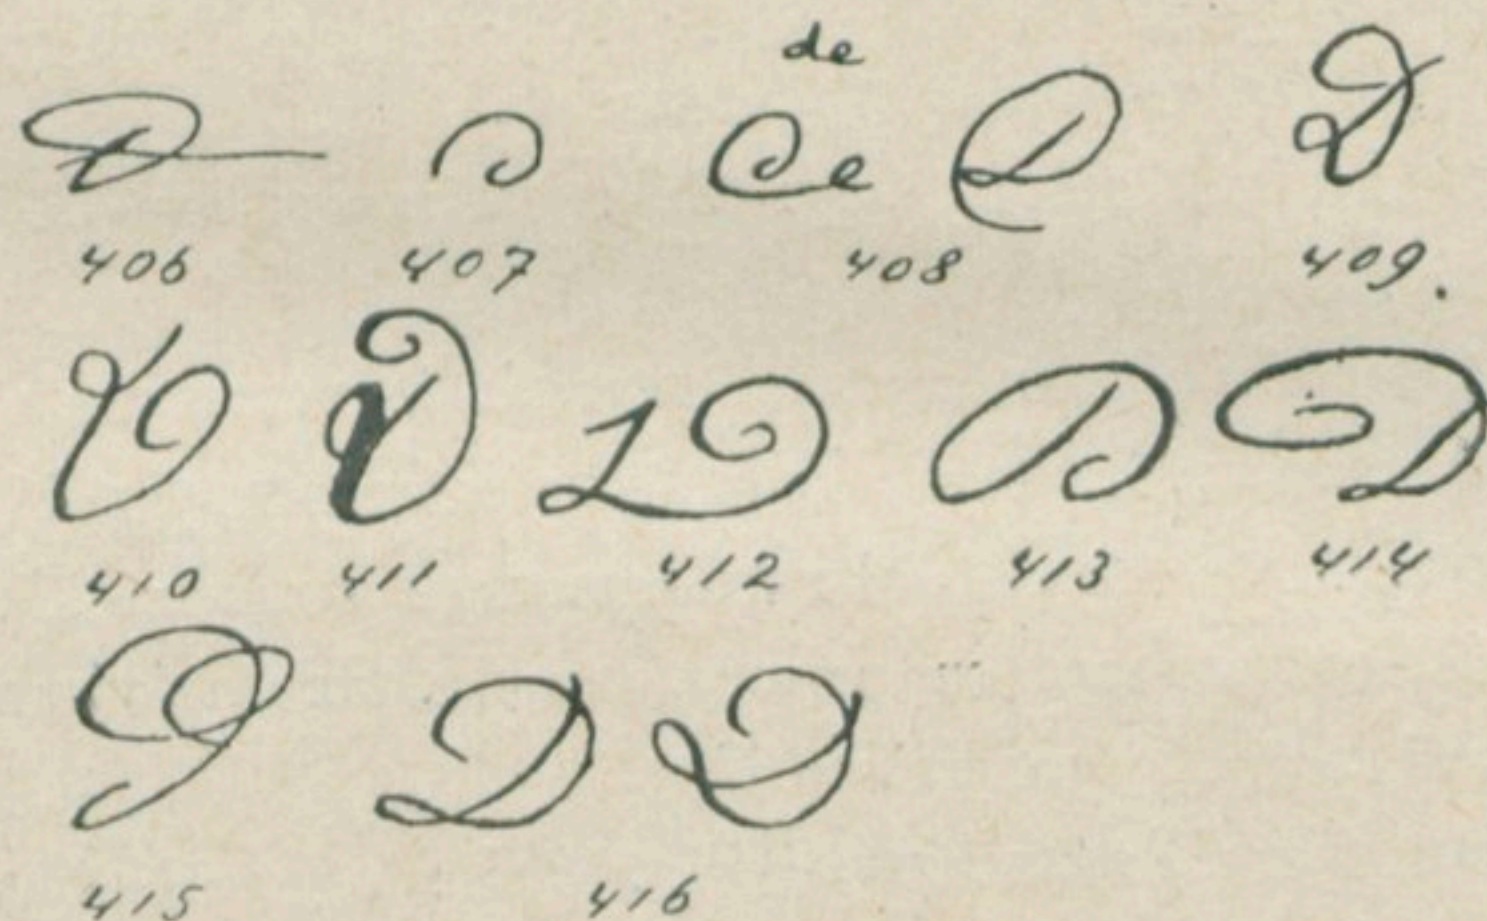 de
D D De D D
406 407 408 409.
D D D D D
410 411 412 413 414
D D D
415 416